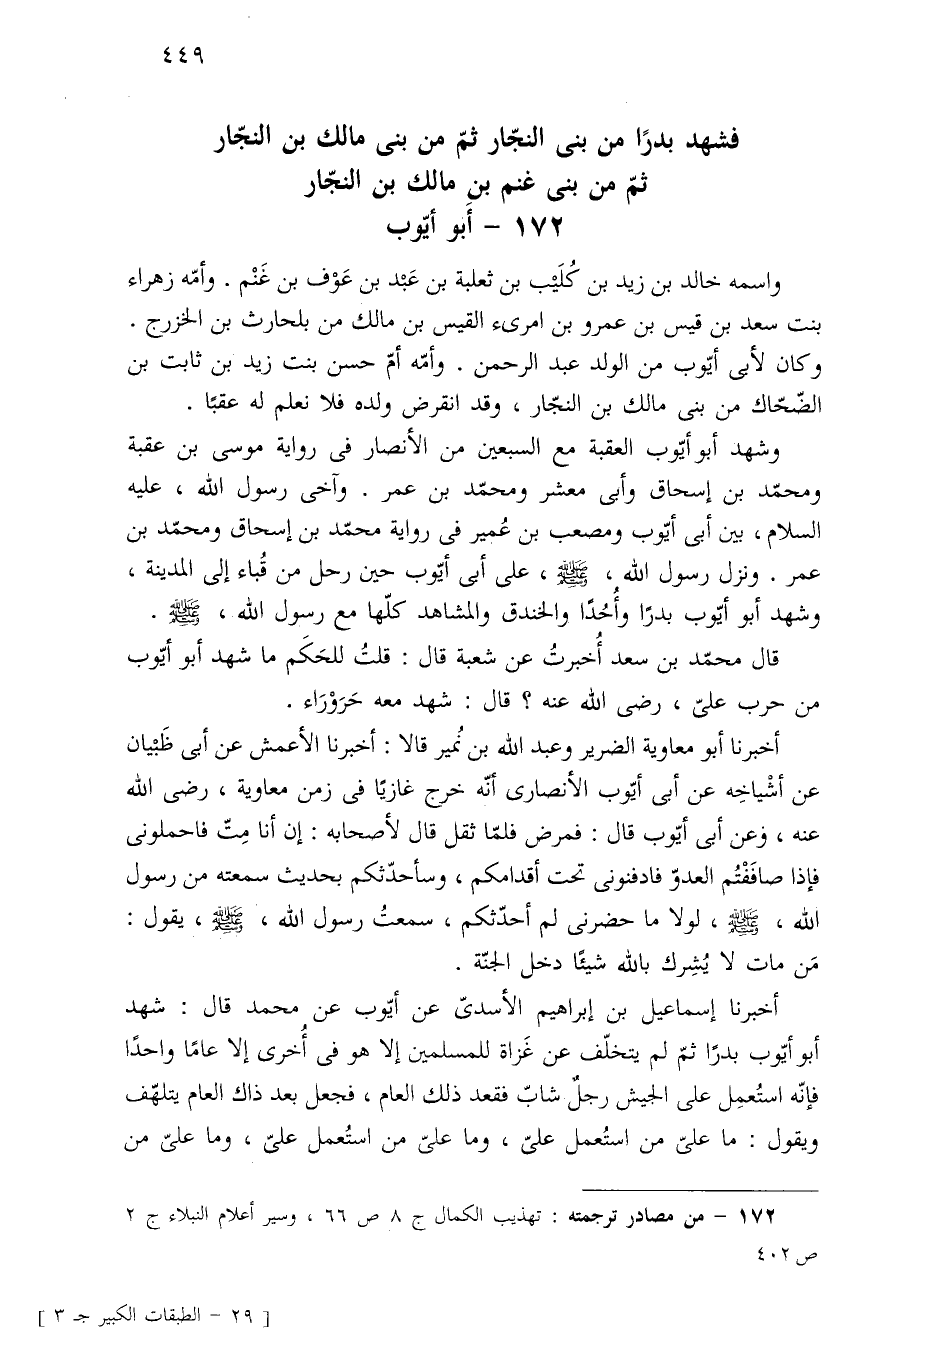 ٤٤٩
فشهد بدرًا من بنى النجّار ثمّ من بنى مالك بن النجّار
ثمّ من بنى غنم بن مالك بن النجّار
١٧٢ – أبو أيّوب
واسمه خالد بن زيد بن كُلَيْب بن ثعلبة بن عَبْد بن عَوْف بن غَنْم . وأمّه زهراء
بنت سعد بن قيس بن عمرو بن امرىء القيس بن مالك من بلحارث بن الخزرج .
وكان لأبى أيّوب من الولد عبد الرحمن . وأمّه أمّ حسن بنت زيد بن ثابت بن
الضّحّاك من بنى مالك بن النجّار ، وقد انقرض ولده فلا نعلم له عقبًا .
وشهد أبو أيّوب العقبة مع السبعين من الأنصار فى رواية موسى بن عقبة
ومحمّد بن إسحاق وأبى معشر ومحمّد بن عمر . وآخى رسول الله ، عليه
السلام ، بين أبى أيّوب ومصعب بن عُمير فى رواية محمّد بن إسحاق ومحمّد بن
عمر . ونزل رسول الله ، ﷺ ، على أبى أيّوب حين رحل من قُباء إلى المدينة ،
وشهد أبو أيّوب بدرًا وأُحُدًا والخندق والمشاهد كلّها مع رسول الله ، ﷺ .
قال محمّد بن سعد أُخبرتُ عن شعبة قال : قلتُ للحَكَم ما شهد أبو أيّوب
من حرب علىّ ، رضى الله عنه ؟ قال : شهد معه حَرَوْرَاء .
أخبرنا أبو معاوية الضرير وعبد الله بن نُمير قالا : أخبرنا الأعمش عن أبى ظَبْيان
عن أشْياخِه عن أبى أيّوب الأنصارى أنّه خرج غازيًا فى زمن معاوية ، رضى الله
عنه ، وَعن أبى أيّوب قال : فمرض فلمّا ثقل قال لأصحابه : إن أنا مِتّ فاحملونى
فإذا صافَفْتُم العدوّ فادفنونى تحت أقدامكم ، وسأحدّثكم بحديث سمعته من رسول
الله ، ﷺ ، لولا ما حضرنى لم أحدّثكم ، سمعتُ رسول الله ، ﷺ ، يقول :
مَن مات لا يُشرِك بالله شيئًا دخل الجنّة .
أخبرنا إسماعيل بن إبراهيم الأسدىّ عن أيّوب عن محمد قال : شهد
أبو أيّوب بدرًا ثمّ لم يتخلّف عن غَزاة للمسلمين إلا هو فى أُخرى إلا عامًا واحدًا
فإنّه استُعمِل على الجيش رجلٌ شابّ فقعد ذلك العام ، فجعل بعد ذاك العام يتلهّف
ويقول : ما علىّ من استُعمل علىّ ، وما علىّ من استُعمل علىّ ، وما علىّ من
١٧٢ – من مصادر ترجمته : تهذيب الكمال ج ٨ ص ٦٦ ، وسير أعلام النبلاء ج ٢
ص ٤٠٢
[ ٢٩ – الطبقات الكبير جـ ٣ ]